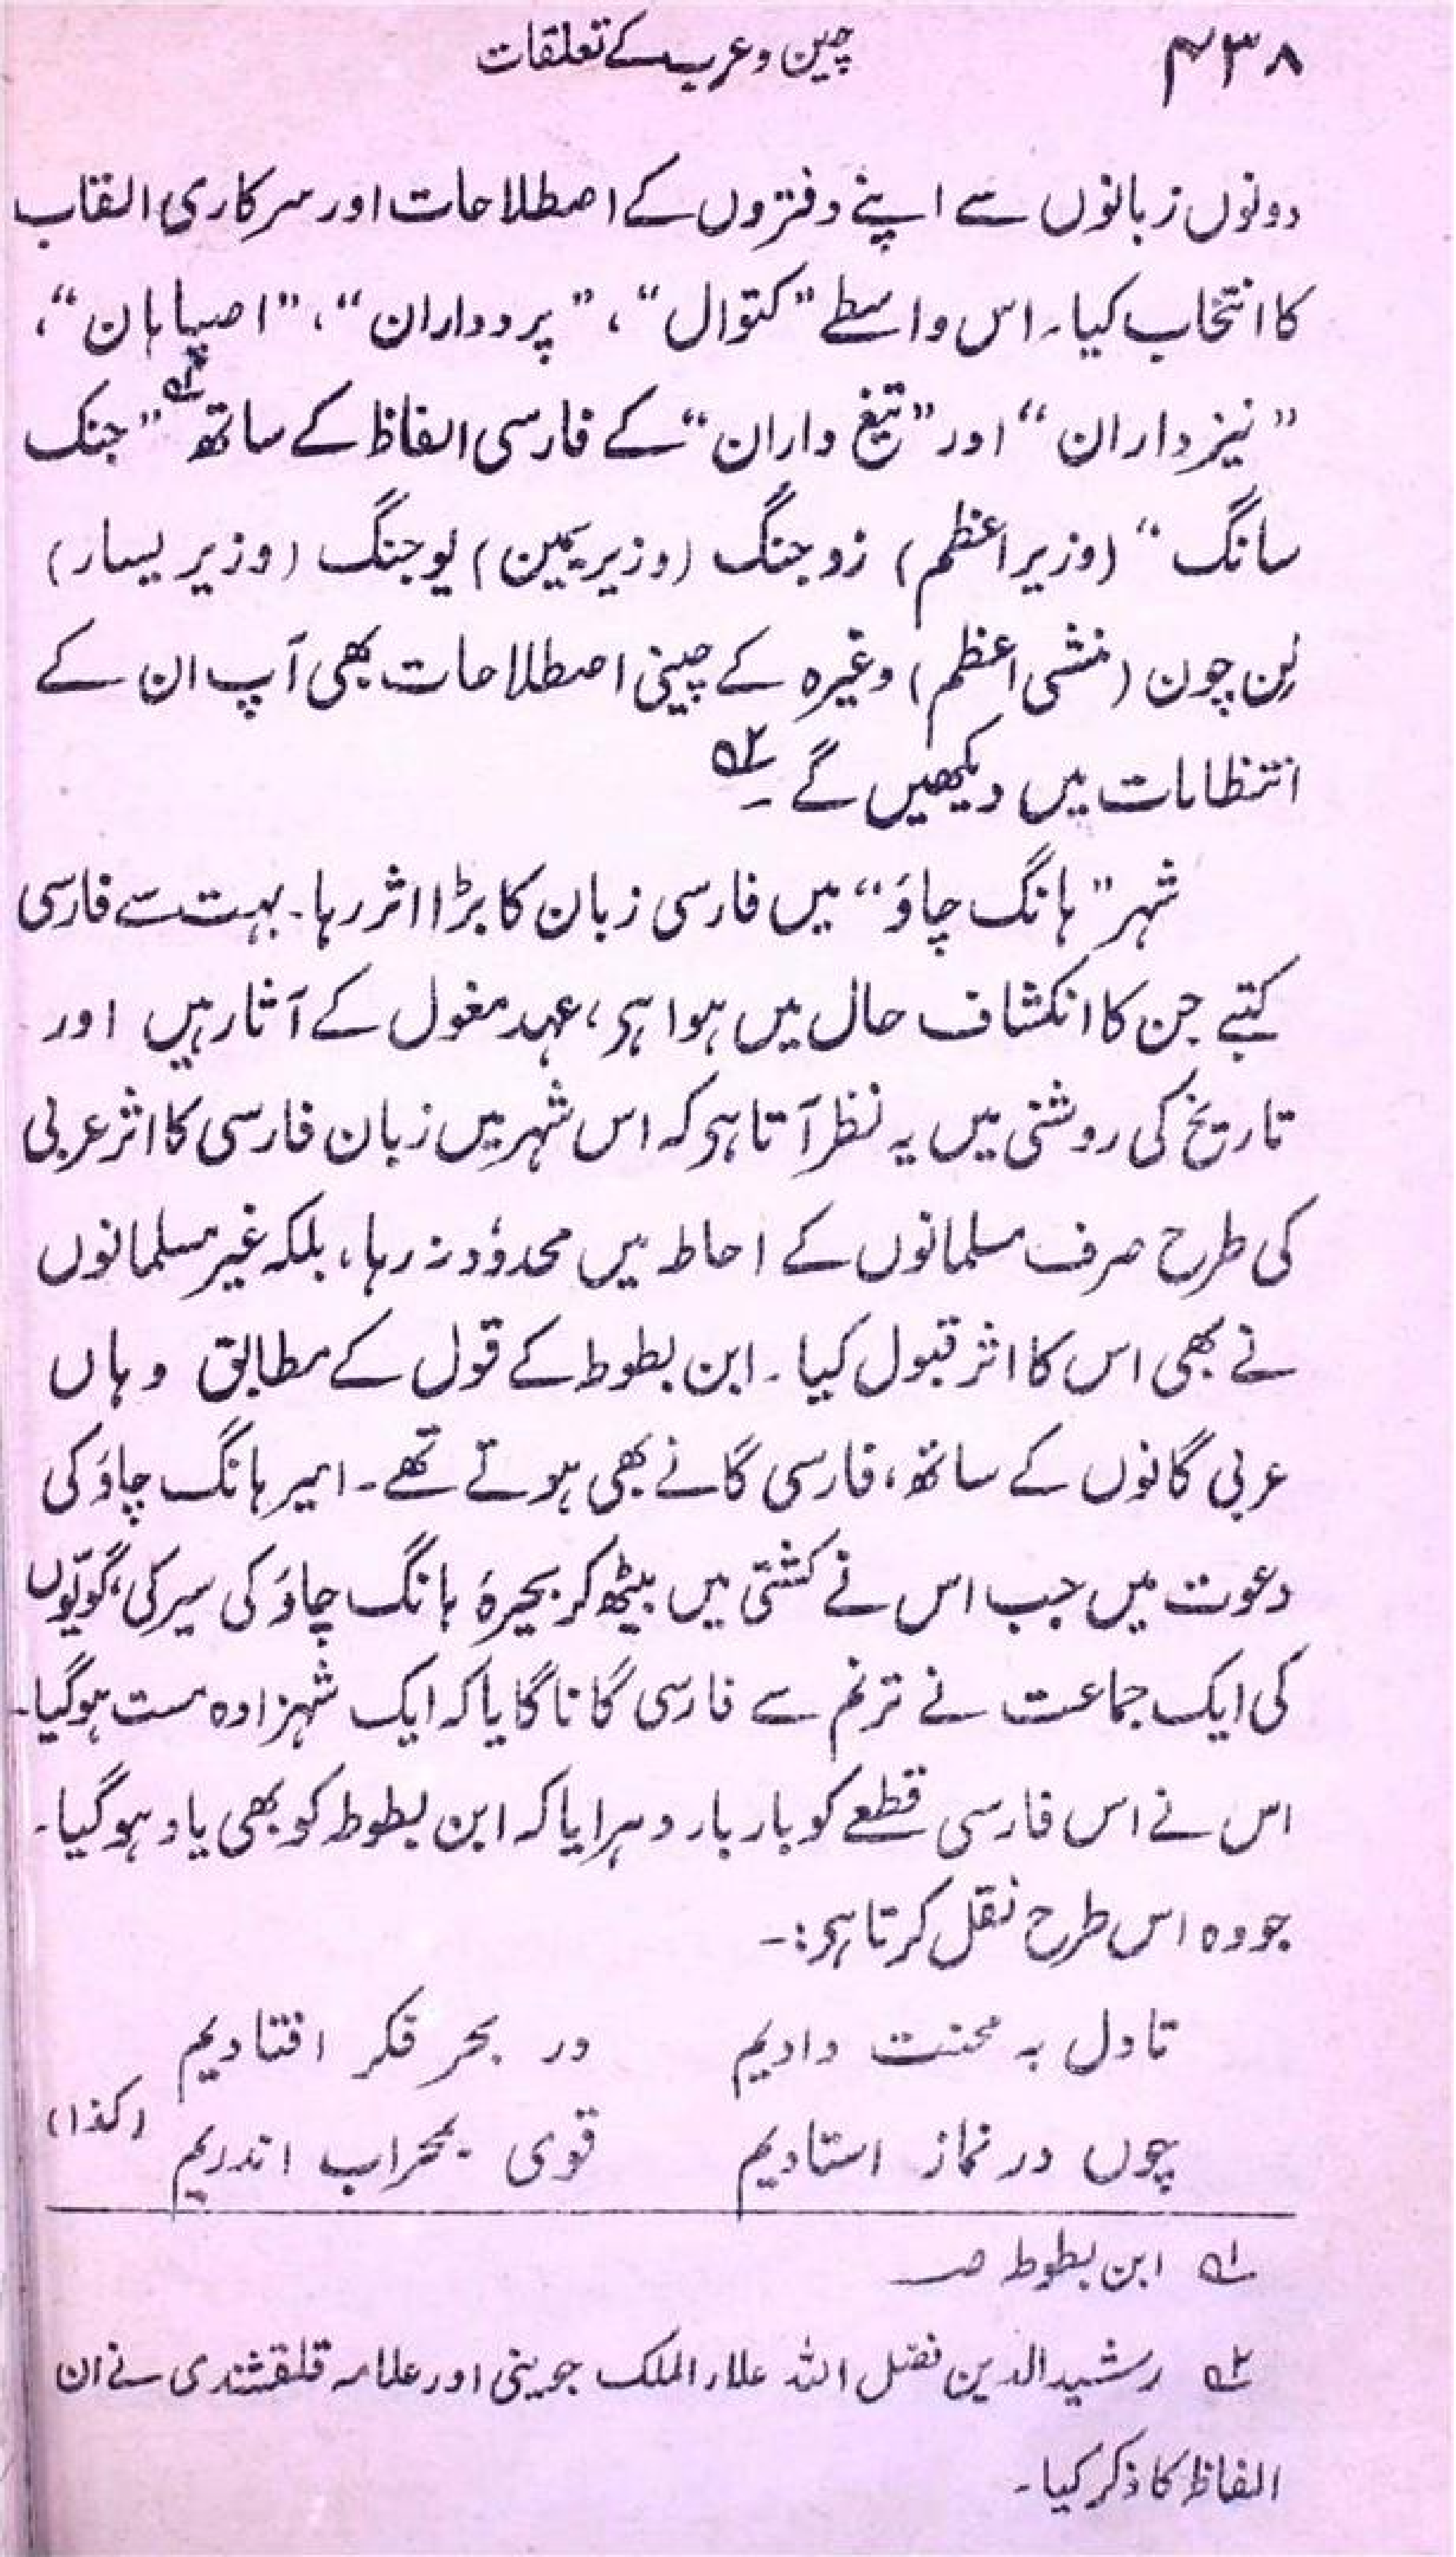 ۴۳۸
چین و عرب کے تعلقات
دونوں زبانوں سے اپنے دفتروں کے اصطلاحات اور سرکاری القاب
کا انتخاب کیا۔ اس واسطے ”کتوال“، ”پردداران“، ”اصپاہان“،
”نیزداران“ اور ”تیغ داران“ کے فارسی الفاظ کے ساتھ ۱؎ ”جنک
سانگ“ (وزیر اعظم) زوجنگ (وزیر یمین) یوجنگ (وزیر یسار)
لِن چون (منشی اعظم) وغیرہ کے چینی اصطلاحات بھی آپ ان کے
انتظامات میں دیکھیں گے۔ ۲؎
شہر ”ہانگ چاؤ“ میں فارسی زبان کا بڑا اثر رہا۔ بہت سے فارسی
کتبے جن کا انکشاف حال میں ہوا ہی، عہد مغول کے آثار ہیں اور
تاریخ کی روشنی میں یہ نظر آتا ہی کہ اس شہر میں زبان فارسی کا اثر عربی
کی طرح صرف مسلمانوں کے احاطہ میں محدوٗد نہ رہا، بلکہ غیر مسلمانوں
نے بھی اس کا اثر قبول کیا۔ ابن بطوط کے قول کے مطابق وہاں
عربی گانوں کے ساتھ، فارسی گانے بھی ہوتے تھے۔ امیر ہانگ چاؤ کی
دعوت میں جب اس نے کشتی میں بیٹھ کر بحیرۂ ہانگ چاؤ کی سیر کی، گویّوں
کی ایک جماعت نے ترنم سے فارسی گانا گایا کہ ایک شہزادہ مست ہوگیا۔
اس نے اس فارسی قطعے کو بار بار دہرایا کہ ابن بطوط کو بھی یاد ہوگیا۔
جو وہ اس طرح نقل کرتا ہی:۔
تا دل بہ محنت دادیم در بحر فکر افتادیم
چوں در نماز استادیم قوی بمحراب اندریم (کذا)
۱؎ ابن بطوط صـ
۲؎ رشید الدین فضل اللہ علاء الملک جوینی اور علامہ قلقشندی نے ان
الفاظ کا ذکر کیا۔